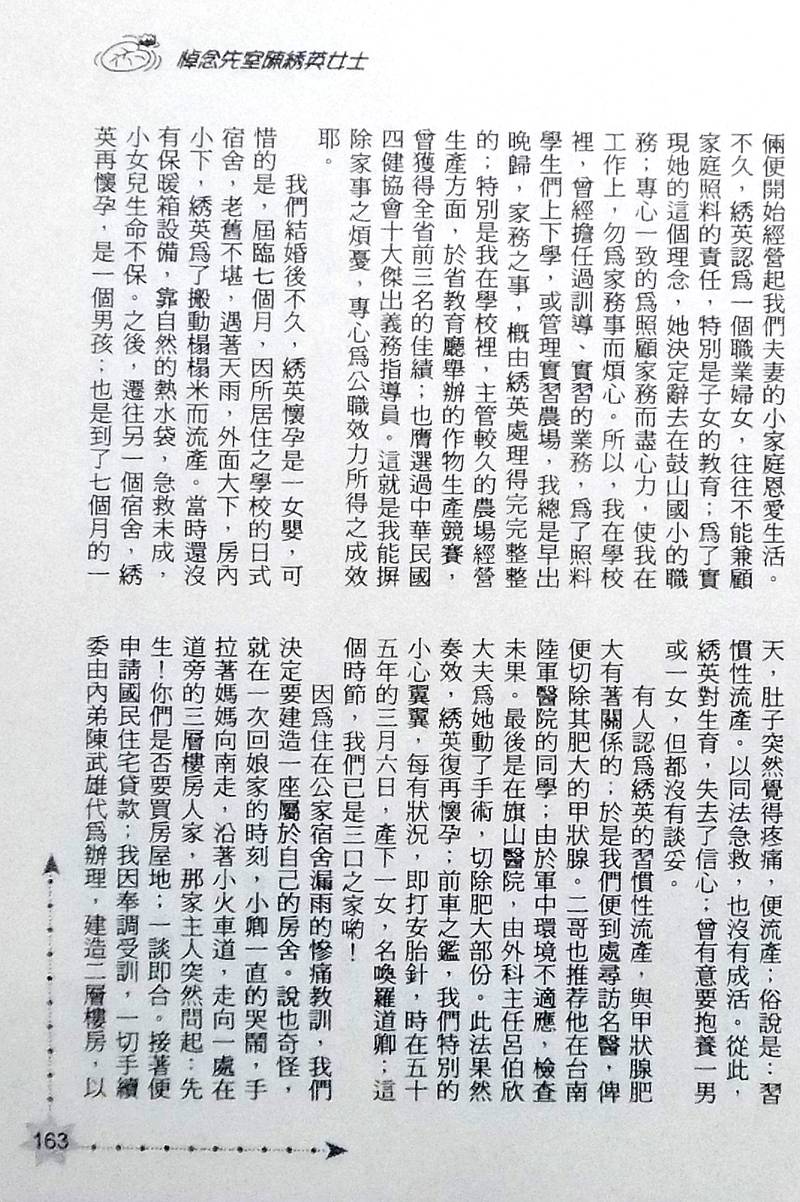 悼念先室陳綉英女士
倆便開始經營起我們夫妻的小家庭恩愛生活。
不久，綉英認爲一個職業婦女，往往不能兼顧
家庭照料的責任，特別是子女的教育；爲了實
現她的這個理念，她決定辭去在鼓山國小的職
務；專心一致的爲照顧家務而盡心力，使我在
工作上，勿爲家務事而煩心。所以，我在學校
裡，曾經擔任過訓導、實習的業務，爲了照料
學生們上下學，或管理實習農場，我總是早出
晚歸，家務之事，概由綉英處理得完完整整
的；特別是我在學校裡，主管較久的農場經營
生產方面，於省教育廳舉辦的作物生產競賽，
曾獲得全省前三名的佳績；也膺選過中華民國
四健協會十大傑出義務指導員。這就是我能摒
除家事之煩憂，專心爲公職效力所得之成效
耶。
我們結婚後不久，綉英懷孕是一女嬰，可
惜的是，屆臨七個月，因所居住之學校的日式
宿舍，老舊不堪，遇著天雨，外面大下，房內
小下，綉英爲了搬動榻榻米而流產。當時還沒
有保暖箱設備，靠自然的熱水袋，急救未成，
小女兒生命不保。之後，遷往另一個宿舍，綉
英再懷孕，是一個男孩；也是到了七個月的一
天，肚子突然覺得疼痛，便流產；俗說是：習
慣性流產。以同法急救，也沒有成活。從此，
綉英對生育，失去了信心；曾有意要抱養一男
或一女，但都沒有談妥。
有人認爲綉英的習慣性流產，與甲狀腺肥
大有著關係的；於是我們便到處尋訪名醫，俾
便切除其肥大的甲狀腺。二哥也推荐他在台南
陸軍醫院的同學；由於軍中環境不適應，檢查
未果。最後是在旗山醫院，由外科主任呂伯欣
大夫爲她動了手術，切除肥大部份。此法果然
奏效，綉英復再懷孕；前車之鑑，我們特別的
小心翼翼，每有狀況，即打安胎針，時在五十
五年的三月六日，產下一女，名喚羅道卿；這
個時節，我們已是三口之家喲！
因爲住在公家宿舍漏雨的慘痛教訓，我們
決定要建造一座屬於自己的房舍。說也奇怪，
就在一次回娘家的時刻，小卿一直的哭鬧，手
拉著媽媽向南走，沿著小火車道，走向一處在
道旁的三層樓房人家，那家主人突然問起：先
生！你們是否要買房屋地；一談即合。接著便
申請國民住宅貸款；我因奉調受訓，一切手續
委由內弟陳武雄代爲辦理，建造二層樓房，以
163